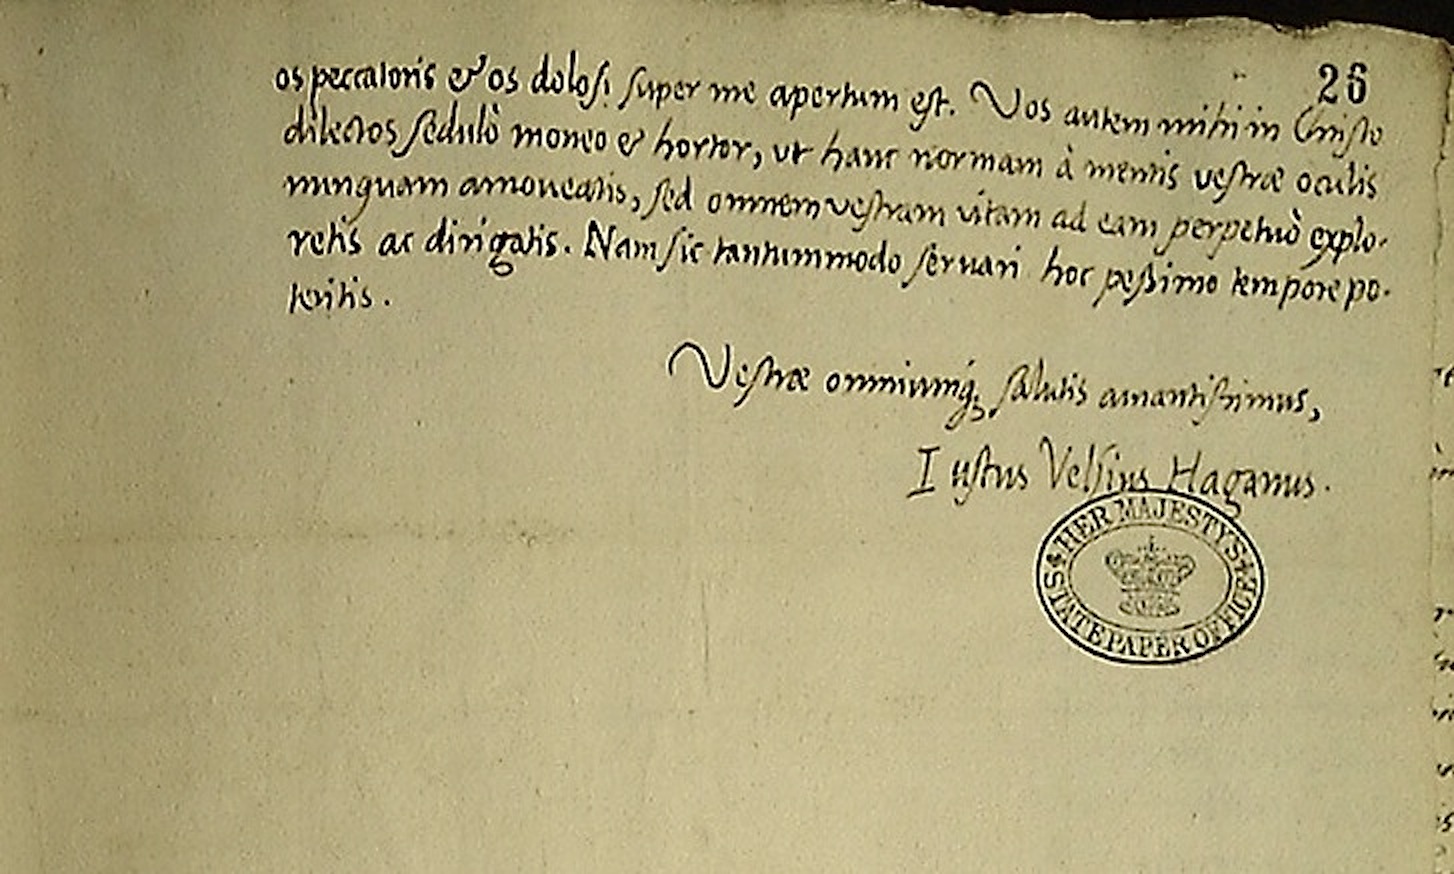 26
os peccatoris & os dolosi super me apertum est. Vos autem mihi in Christo
dilectos sedulò moneo & hortor, ut hanc normam à mentis vestræ oculis
nunquam amoveatis, sed omnem vestram vitam ad eam perpetuò explo-
retis ac dirigatis. Nam sic tantummodo servari hoc peßimo tempore po-
teritis.
Vestræ omniumq; salutis amantissimus,
Iustus Velsius Haganus.
HER MAJESTY'S
STATE PAPER OFFICE